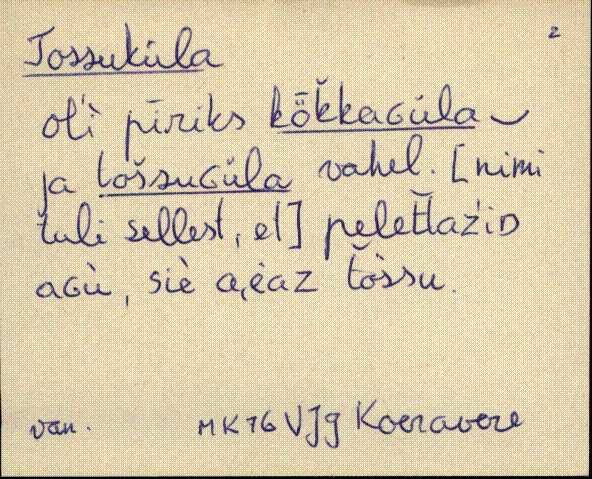 2
Tossuküla
ol'ì pīriks kö̆̄kkaGüla
ja tošsuGüla vahel. [nimi
tuli sellest, et] peleťlaźiD
aGù, siè a̬èaz tòssu.
van. MK76 VJg Koeravere